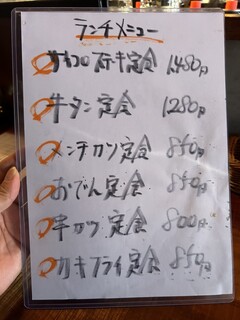 ランチメニュー
サイコロステーキ定食 1480円
牛タン定食 1280円
メンチカツ定食 850円
おでん定食 850円
串カツ定食 800円
カキフライ定食 850円